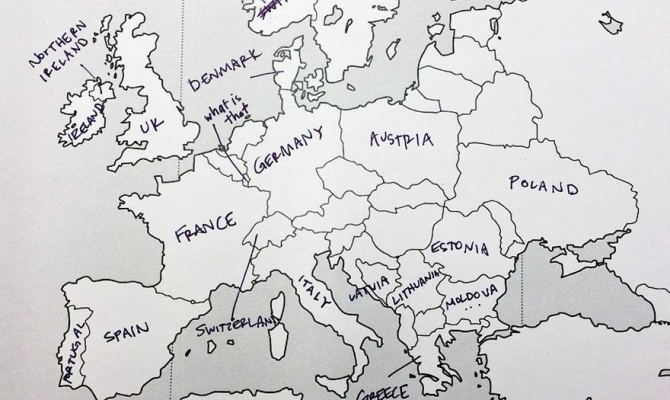 NORTHERN
IRELAND
DENMARK
what is
that
IRELAND
UK
GERMANY
AUSTRIA
POLAND
FRANCE
ESTONIA
ITALY
LATVIA
LITHUANIA
MOLDOVA
SWITZERLAND
PORTUGAL
SPAIN
GREECE